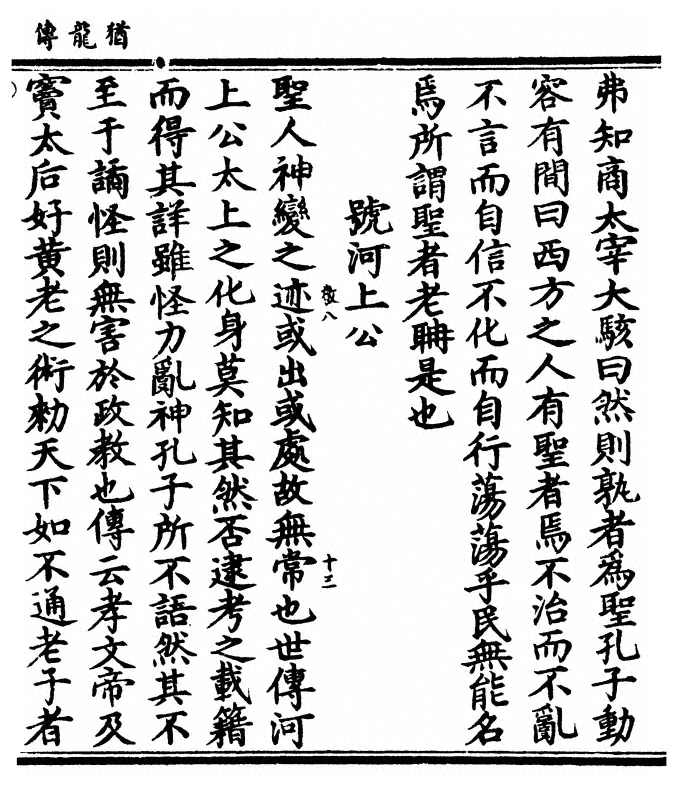 猶龍傳
弗知商太宰大駭曰然則孰者爲聖孔子動
容有間曰西方之人有聖者焉不治而不亂
不言而自信不化而自行蕩蕩乎民無能名
焉所謂聖者老聃是也
號河上公
聖人神變之迹或出或處故無常也世傳河
上公太上之化身莫知其然否逮考之載籍
而得其詳雖怪力亂神孔子所不語然其不
至于譎怪則無害於政教也傳云孝文帝及
竇太后好黄老之術勑天下如不通老子者
十三